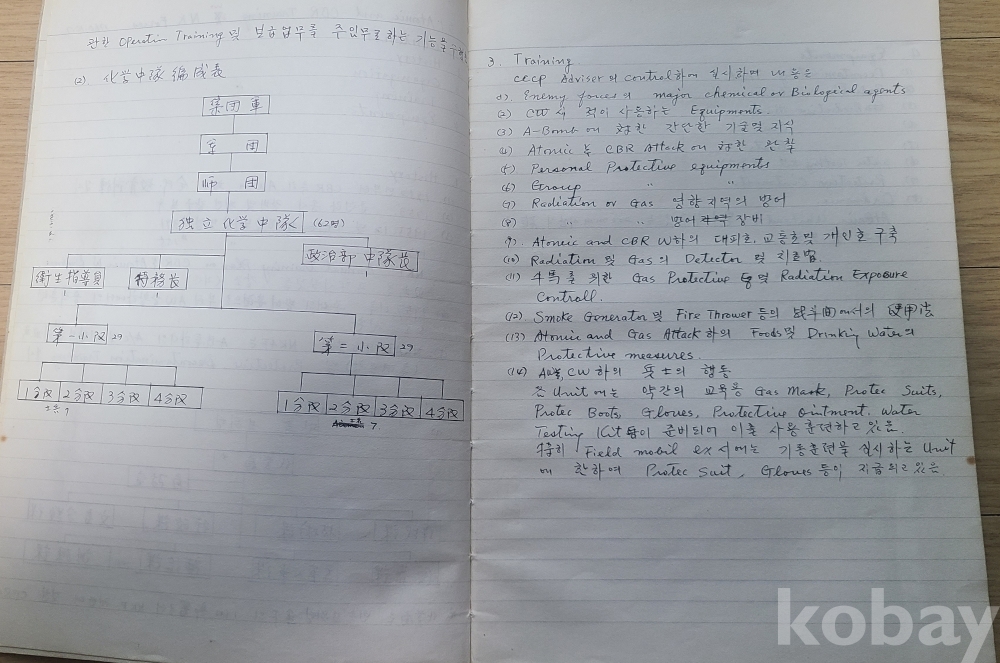 관한 Operation Training 및 보급업무를 주임무로하는 기능을
(2) 化学中隊 編成表
集団軍
军 団
师 団
独立化学中隊 (62명)
政治部中隊長
衛生指導員
特務長
第一小队 29
第二小队 29
1分队 2分队 3分队 4分队
7
1分队 2分队 3分队 4分队
7
3. Training
CECP Adviser의 Control하에 실시하며 내용은
(1) Enemy forces의 major chemical or Biological agents
(2) CW 적이 사용하는 Equipments
(3) A-Bomb에 対한 간단한 기술및 지식
(4) Atomic 및 CBR Attack에 対한
(5) Personal Protective equipments
(6) Group 〃 〃
(7) Radiation or Gas 영향지역의 방어
(8) 〃 〃 방어 장비
(9) Atomic and CBR W하의 대피호, 교통호및 개인호 구축
(10) Radiation 및 Gas의 Detector 및 치료법
(11) 위한 Gas Protective 및 Radiation Exposure
Controll.
(12) Smoke Generator및 Fire Thrower 등의 에서의 使用法
(13) Atomic and Gas Attack하의 Foods및 Drinking Water의
Protective measures.
(14) CW하의 兵士의 행동
各 Unit에는 약간의 교육용 Gas Mask, Protec Suits,
Protec Boots, Gloves, Protective Ointment, Water
Testing Kit등이 준비되어 이를 사용 훈련하고 있음.
특히 Field mobil ex시에는 기동훈련을 실시하는 Unit
에 한하여 Protec Suit, Gloves 등이 지급되고 있음.
kobay